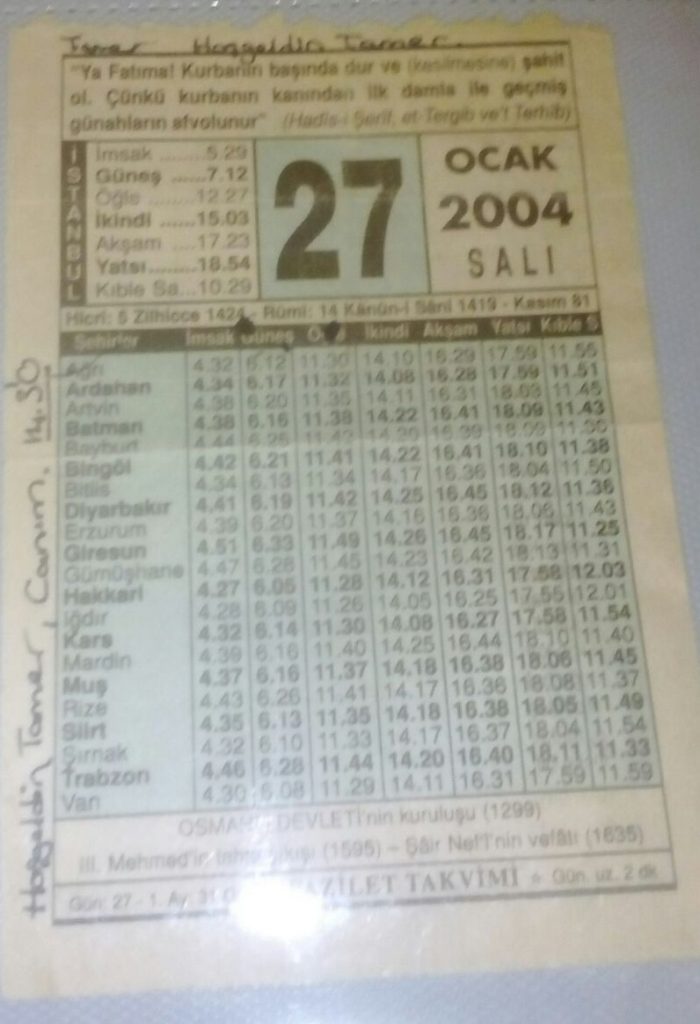 Tamer Hoşgeldin Tamer.
"Ya Fatıma! Kurbanın başında dur ve (kesilmesine) şahit
ol. Çünkü kurbanın kanından ilk damla ile geçmiş
günahların afvolunur" (Hadîs-i Şerîf, et-Tergib ve't Terhib)
İSTANBUL
İmsak ........5.29
Güneş ......7.12
Öğle ........12.27
İkindi ......15.03
Akşam ....17.23
Yatsı........18.54
Kıble Sa...10.29
27
OCAK
2004
SALI
Hicrî: 5 Zilhicce 1424 - Rûmî: 14 Kânûn-i Sânî 1419 - Kasım 81
Şehirler İmsak Güneş İkindi Akşam Yatsı Kıble S
Ağrı 4.32 6.12 11.30 14.10 16.29 17.59 11.55
Ardahan 4.34 6.17 11.32 14.08 16.28 17.59 11.51
Artvin 4.38 6.20 11.35 14.11 16.31 18.03 11.45
Batman 4.38 6.16 11.38 14.22 16.41 18.09 11.43
Bayburt 4.44 6.25
Bingöl 4.42 6.21 11.41 14.22 16.41 18.10 11.38
Bitlis 4.34 6.13 11.34 14.17 16.36 18.04 11.50
Diyarbakır 4.41 6.19 11.42 14.25 16.45 18.12 11.36
Erzurum 4.39 6.20 11.37 14.16 16.36 18.06 11.43
Giresun 4.51 6.33 11.49 14.26 16.45 18.17 11.25
Gümüşhane 4.47 6.28 11.45 14.23 16.42 18.13 11.31
Hakkari 4.27 6.05 11.28 14.12 16.31 17.58 12.03
Iğdır 4.28 6.09 11.26 14.05 16.25 17.55 12.01
Kars 4.32 6.14 11.30 14.08 16.27 17.58 11.54
Mardin 4.39 6.16 11.40 14.25 16.44 18.10 11.40
Muş 4.37 6.16 11.37 14.18 16.38 18.06 11.45
Rize 4.43 6.26 11.41 14.17 16.36 18.08 11.37
Siirt 4.35 6.13 11.35 14.18 16.38 18.05 11.49
Şırnak 4.32 6.10 11.33 14.17 16.37 18.04 11.54
Trabzon 4.46 6.28 11.44 14.20 16.40 18.11 11.33
Van 4.30 6.08 11.29 14.11 16.31 17.59 11.59
OSMANLI DEVLETİ'nin kuruluşu (1299)
III. Mehmed'in tahta çıkışı (1595) – Şâir Nef'î'nin vefâtı (1635)
Gün: 27 - 1. Ay, 31 FAZİLET TAKVİMİ Gün. uz. 2 dk.
Hoşgeldin Tamer, Canım, 14.30